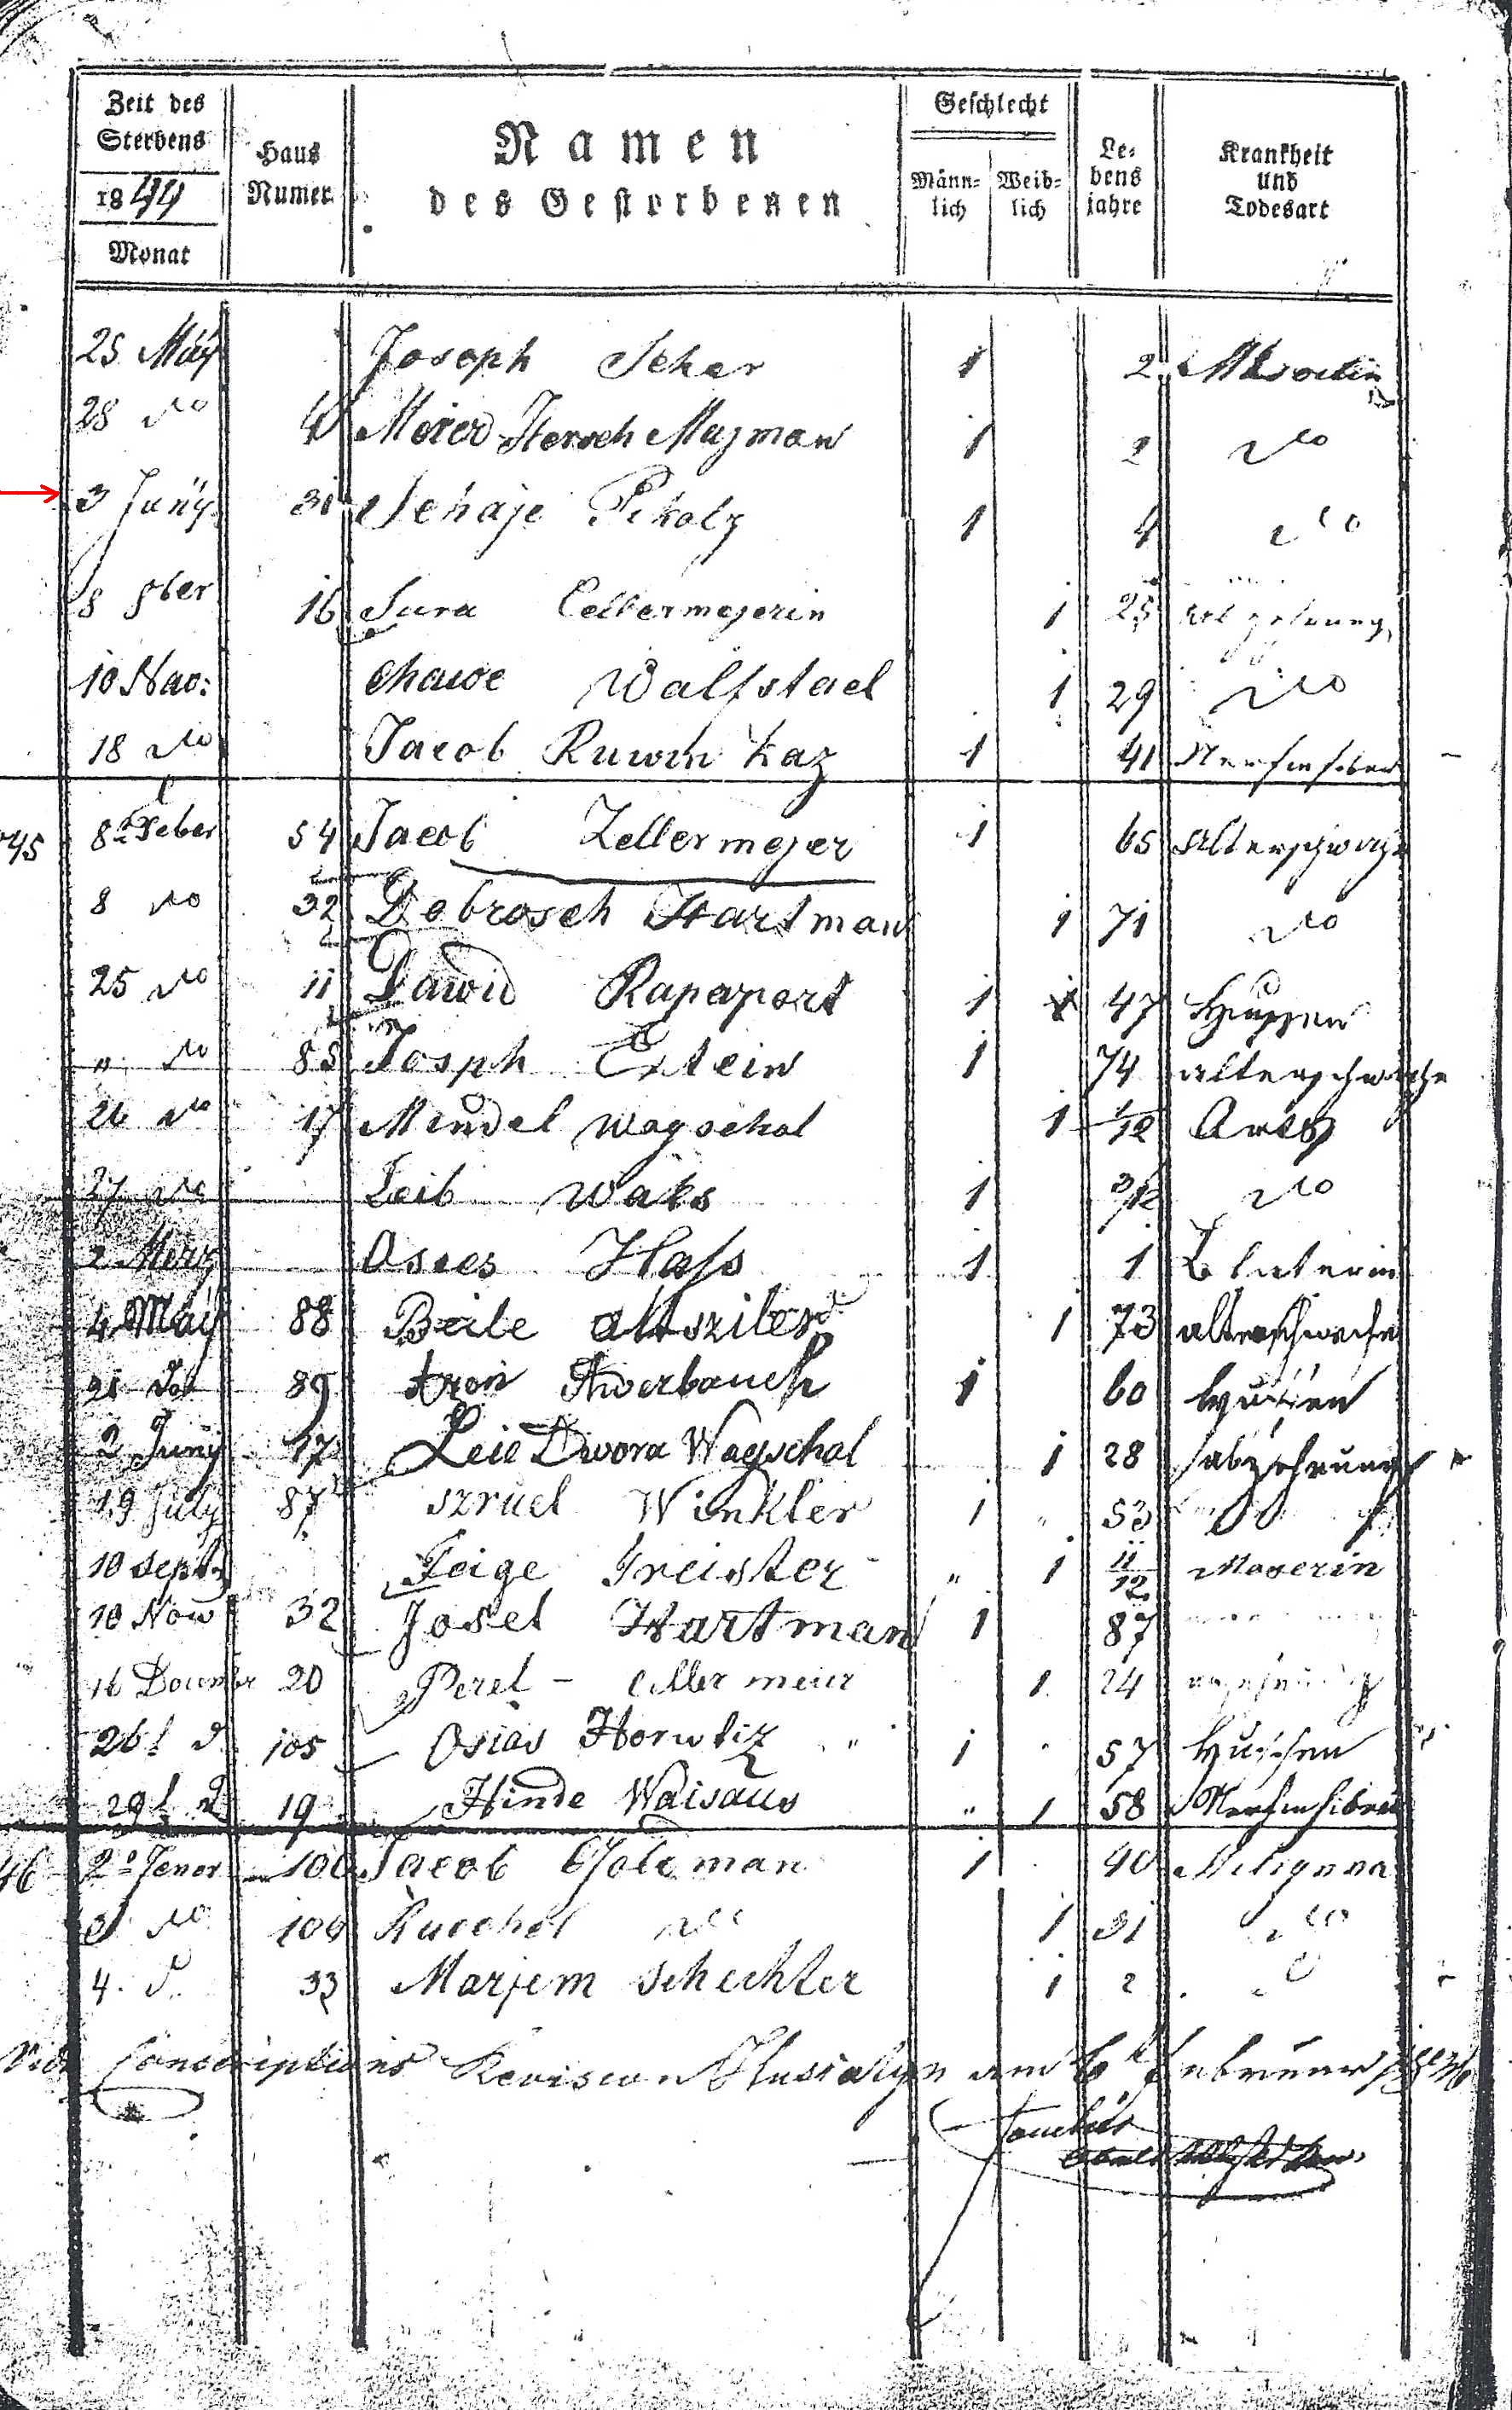 Zeit des Sterbens 1844 Monat
Haus Numer.
Namen des Gestorbenen
Geschlecht
Männlich Weiblich
Lebens jahre
Krankheit und Todesart
25 May Joseph Scher 1 2
28 do Meier Hersch Mazman 1 2 do
3 Juny 31 Schaje Pikolz 1 4 do
8 8ber 16 Sura Cellermejerin 1 25
10 Nov: Chawe Walfstael 1 29 do
18 do Jacob Ruwin Kaz 1 41 Nerfenfiber
45 8 Feber 54 Jacob Zellermejer 1 65
8 do 32 Dobrosch Hartman 1 71 do
25 do 11 Dawid Rapaport 1 47 Husten
" do 85 Josph Extein 1 74 alterschwache
26 do 17 Mendel Wagschal 1 1/12
27 do Leib Waks 1 3/12 do
2 Merz Osies Hass 1 1 Blaterin
4 May 88 Beile Altsziler 1 73 alterschwache
21 do 89 Aron Awerbauch 1 60 Husten
2 Juny 17 Leie Dwora Wagschal 1 28 abzehrung
19 July 87 Szruel Winkler 1 " 53
10 Sept. Feige Treister " 1 11/12 Maserin
18 Now 32 Josel Hartman 1 87
16 Decembr 20 Perel - Cellermeier 1 24
26t d 105 Osias Horwitz " 1 57 Husten
29t d 19 Hinde Waisaus " 1 58 Nerfenfiber
46 2 Jener 100 Jacob Golzman 1 40
do 100 Ruchel do 1 31 do
4. d 33 Marjem Schechter 1 2 d
Conscriptions Revision Husiatyn am 6t Februar